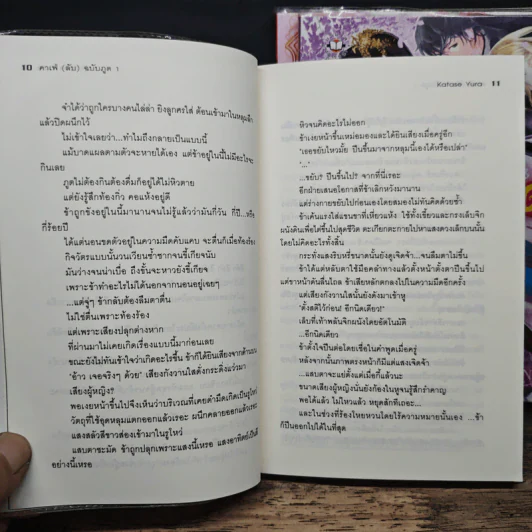 10 คาเฟ่ (ลับ) ฉบับภูต 1
จำได้ว่าถูกใครบางคนไล่ล่า ยิงลูกศรใส่ ต้อนเข้ามาในหลุมลึก
แล้วปิดผนึกไว้
ไม่เข้าใจเลยว่า...ทำไมถึงกลายเป็นแบบนี้
แม้บาดแผลตามตัวจะหายได้เอง แต่ข้าอยู่ในนี้ไม่มีอะไรจะ
กินเลย
ภูตไม่ต้องกินต้องดื่มก็อยู่ได้ไม่หิวตาย
แต่ยังรู้สึกท้องกิ่ว คอแห้งผากอยู่ดี
ข้าถูกขังอยู่ในนี้มานานจนไม่รู้แล้วว่ามันกี่วัน กี่ปี...หรือ
กี่ร้อยปี
ได้แต่นอนขดตัวอยู่ในความมืดคับแคบ จะตื่นก็เมื่อท้องร้อง
กิจวัตรแบบนั้นวนเวียนซ้ำซากจนขี้เกียจนับ
มันว่างจนน่าเบื่อ ถึงขั้นจะหาวยังขี้เกียจ
เพราะข้าทำอะไรไม่ได้นอกจากนอนอยู่เฉยๆ
...แต่จู่ๆ ข้ากลับต้องลืมตาตื่น
ไม่ใช่ตื่นเพราะท้องร้อง
แต่เพราะเสียงปลุกต่างหาก
ที่ผ่านมาไม่เคยเกิดเรื่องแบบนี้มาก่อนเลย
ขณะยังไม่ทันเข้าใจว่าเกิดอะไรขึ้น ข้าก็ได้ยินเสียงจากด้านบน
"อ้าว เจอจริงๆ ด้วย" เสียงกังวานใสดั่งกระดิ่งแว่วมา
เสียงผู้หญิง?
พอเงยหน้าขึ้นไปจึงเห็นว่าบริเวณที่เคยดำมืดเกิดเป็นรูโหว่
วัตถุที่ใช้อุดหลุมแตกออกแล้วเรอะ ผนึกคลายออกแล้วเรอะ
แสงสลัวสีขาวส่องเข้ามาในรูโหว่
แสบตาชะมัด ข้าถูกปลุกเพราะแสงนี้เหรอ แสงอาทิตย์เป็นสี
อย่างนี้เหรอ
Katase Yura 11
หิวจนคิดอะไรไม่ออก
ข้าเงยหน้าขึ้นเหม่อมองและได้ยินเสียงเมื่อครู่อีก
"เธอขยับไหวมั้ย ปีนขึ้นมาจากหลุมนี้เองได้หรือเปล่า"
"..."
...ขยับ? ปีนขึ้นไป? จากที่นี่เรอะ
อีกฝ่ายเสนอโอกาสที่ข้าเลิกหวังมานาน
แต่ร่างกายขยับไปก่อนเองโดยสมองไม่ทันคิดด้วยซ้ำ
ข้าเค้นแรงใส่แขนขาที่เหี่ยวแห้ง ใช้ทั้งเขี้ยวและกรงเล็บจิก
ผนังดินเพื่อไต่ขึ้นไปสุดชีวิต ตะเกียกตะกายไปหาแสงดวงเล็กบนนั้น
โดยไม่คิดอะไรทั้งสิ้น
กระทั่งแสงริบหรี่ขนาดนั้นยังดูเจิดจ้า...จนลืมตาไม่ขึ้น
ข้าได้แต่หลับตาใช้มือคลำทางแล้วตั้งหน้าตั้งตาปีนขึ้นไป
แต่ราหน้าดินดันไถล ข้าเสียหลักตกลงไปในความมืดอีกครั้ง
แต่เสียงกังวานใสนั้นยังดังมาเข้าหู
"ตั้งสติไว้ก่อน! อีกนิดเดียว!"
เล็บที่เท้าพลันจิกผนังโดยอัตโนมัติ
...อีกนิดเดียว
ข้าตั้งใจปีนต่อโดยเชื่อในคำพูดเมื่อครู่
หลังจากนั้นภาพตรงหน้าก็มีแต่แสงเจิดจ้า
...แสบตาจะแย่ตั้งแต่เมื่อกี้แล้วนะ
ขนาดเสียงผู้หญิงนั่นยังก้องในหูจนรู้สึกรำคาญ
พอได้แล้ว ไม่ไหวแล้ว หยุดสักทีเถอะ...
และในช่วงที่ร้องโหยหวนโดยไร้ความหมายนั้นเอง ...ข้า
ก็ปีนออกไปได้ในที่สุด